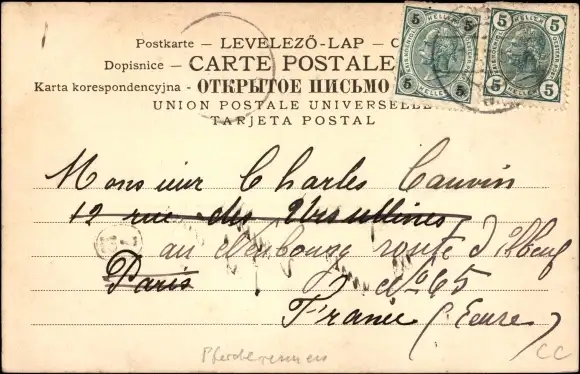 Postkarte – LEVELEZŐ-LAP – C
Dopisnice – CARTE POSTALE
Karta korespondencyjna – ОТКРЫТОЕ ПИСЬМО
UNION POSTALE UNIVERSELLE
TARJETA POSTAL
5 HELLER 5
5 HELLER 5
5 5
5 HELLER 5
Monsieur Charles Cauvin
12 rue des Ursullines
au Neubourg route d'Elbeuf
Paris
No 65
France (Eure)
Pferderennen
CC